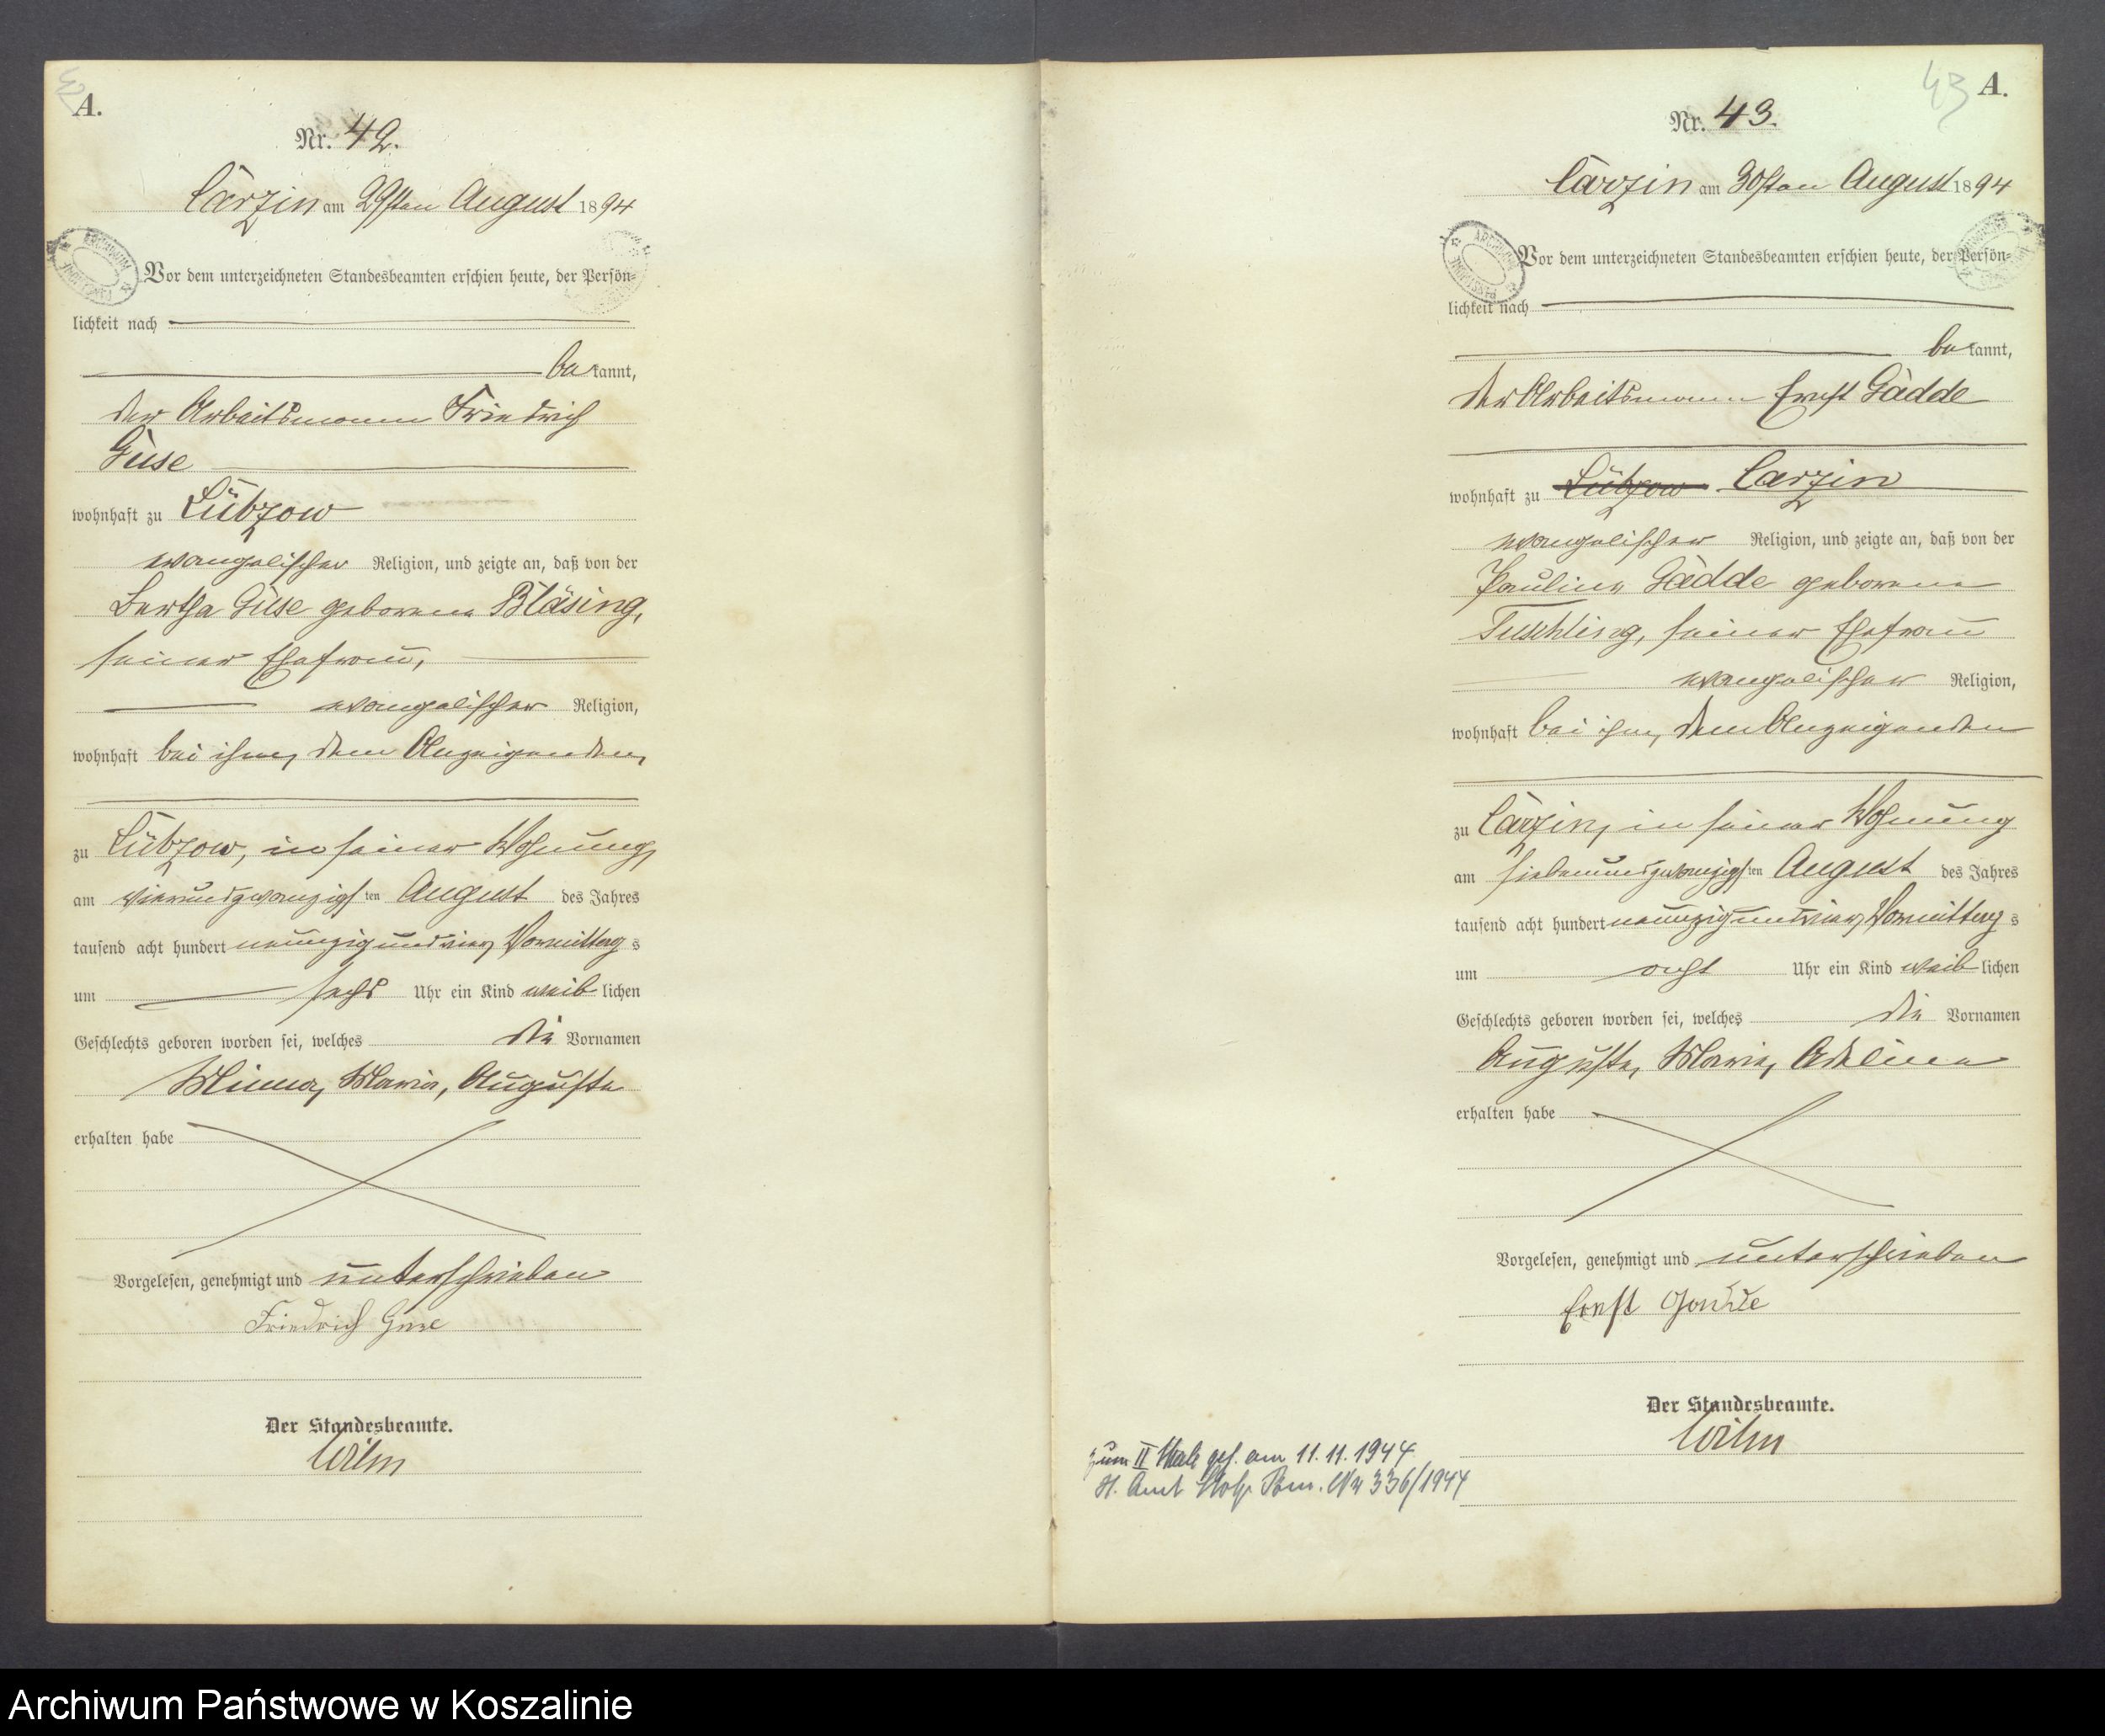 42
A.
Nr. 42.
Carzin am 29sten August 1894
Vor dem unterzeichneten Standesbeamten erschien heute, der Persön-
lichkeit nach
bekannt,
der Arbeitsmann Friedrich
Guse
wohnhaft zu Lübzow
evangelischer Religion, und zeigte an, daß von der
Bertha Guse geborene Bläsing,
seiner Ehefrau,
evangelischer Religion,
wohnhaft bei ihm, dem Anzeigenden,
zu Lübzow, in seiner Wohnung,
am vierundzwanzigsten August des Jahres
tausend acht hundert neunzig und vier, Vormittags
um sechs Uhr ein Kind weiblichen
Geschlechts geboren worden sei, welches die Vornamen
Minna, Marie, Auguste
erhalten habe
Vorgelesen, genehmigt und unterschrieben
Friedrich Guse
Der Standesbeamte.
Wilm
43
A.
Nr. 43.
Carzin am 30sten August 1894
ARCHIWUM
Vor dem unterzeichneten Standesbeamten erschien heute, der Persön-
lichkeit nach
bekannt,
der Arbeitsmann Ernst Gädde
wohnhaft zu Lübzow Carzin
evangelischer Religion, und zeigte an, daß von der
Pauline Gädde geborene
Tuschling, seiner Ehefrau
evangelischer Religion,
wohnhaft bei ihm, dem Anzeigenden
zu Carzin, in seiner Wohnung
am siebenundzwanzigsten August des Jahres
tausend acht hundert neunzig und vier, Vormittags
um acht Uhr ein Kind weiblichen
Geschlechts geboren worden sei, welches die Vornamen
Auguste, Marie, Adeline
erhalten habe
Vorgelesen, genehmigt und unterschrieben
Ernst Gädde
Der Standesbeamte.
Wilm
zum II Male geh. am 11.11.1944
St. Amt Stolp Pom. Nr 336/1944
Archiwum Państwowe w Koszalinie